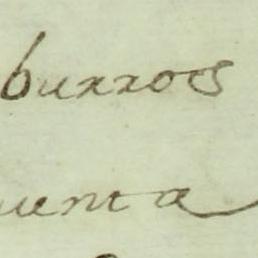 burros
uenta